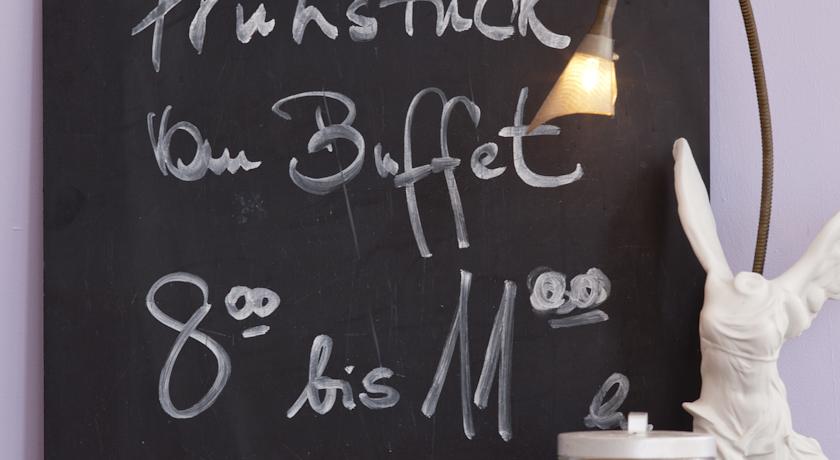 Frühstück
vom Buffet
8⁰⁰ bis 11⁰⁰